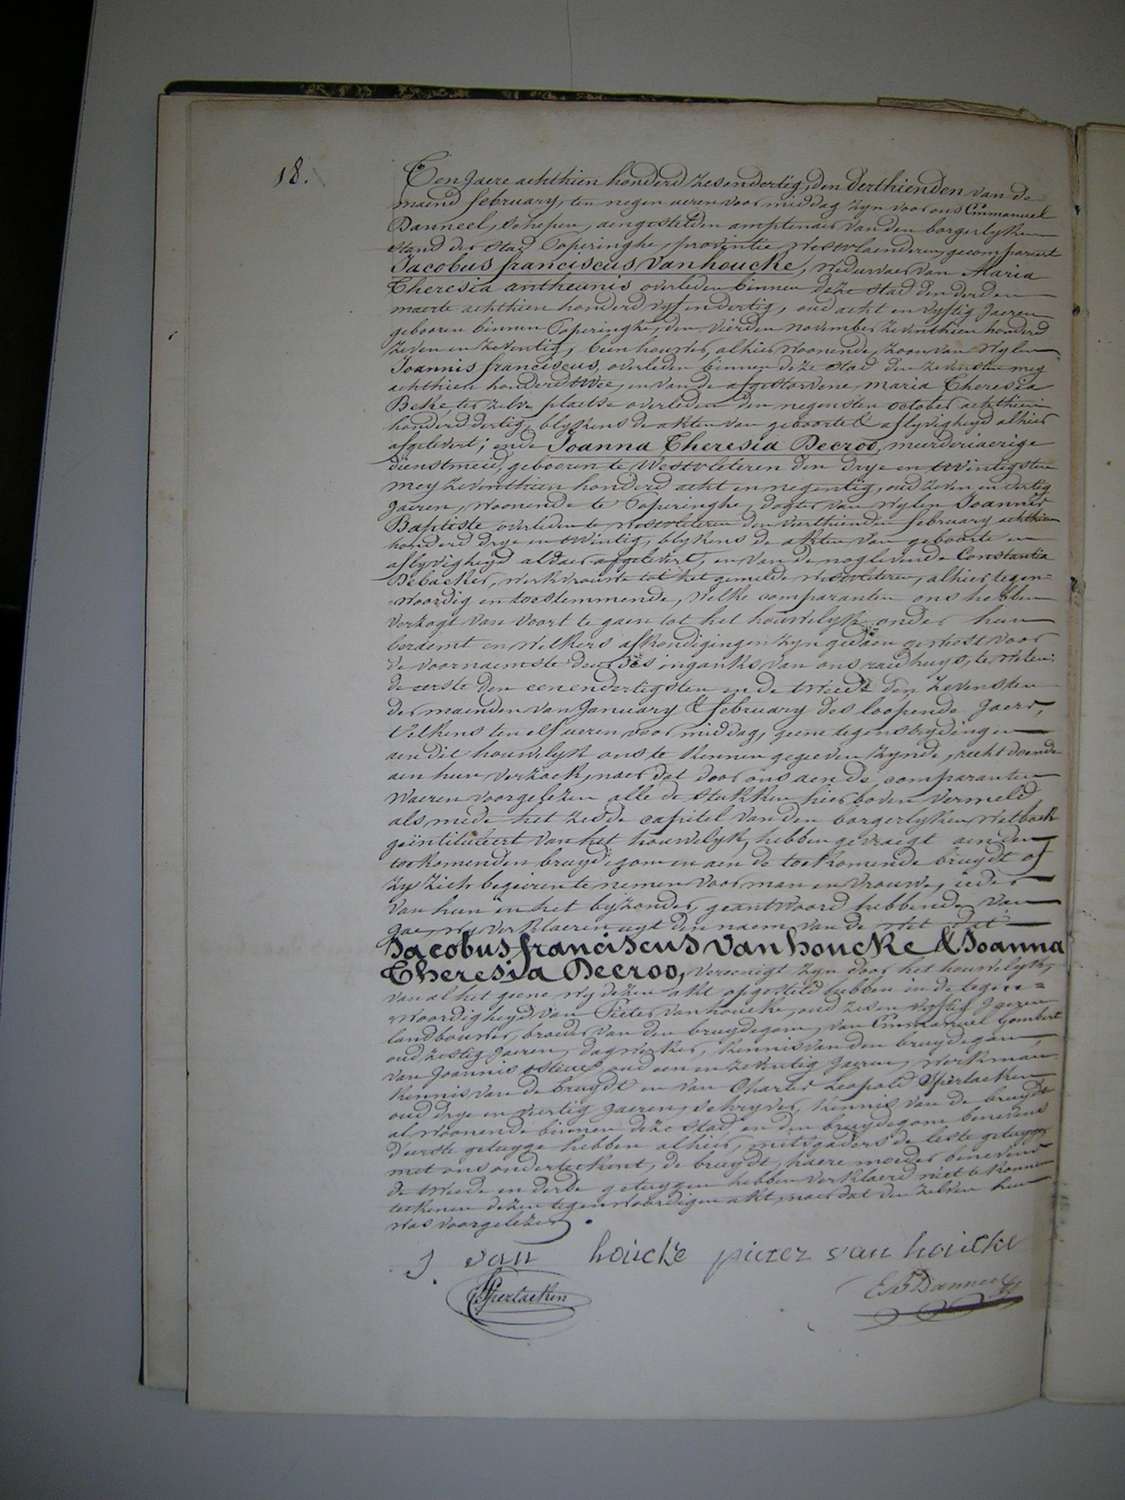 18.
Ten Jaere achthien honderd zesendertig, den derthienden van de
maend february, ten negen ueren voor middag zyn voor ons Emmanuel
Danneel, schepen, aengestelden amptenaer van den borgerlyken
stand der stad Poperinghe, provintie Westvlaenderen, gecompareert
Jacobus franciscus Vanhoucke, weduwaer van Maria
Theresia antheunis overleden binnen deze stad den derden
maerte achthien honderd vyf en dertig, oud acht en vyftig Jaeren
gebooren binnen Poperinghe, den vierden november zeventhien honderd
zeven en zeventig, landbouwer, alhier woonende, zoon van wylen
Joannis franciscus, overleden binnen deze stad den zevensten mey
achthien honderd twee, en van de afgestorvene maria Theresia
Beke ter zelve plaetse overleden den negensten october achthien
honderd dertig, blykens de akten van geboorte & aflyvigheyd alhier
afgelevert; ende Joanna Theresia Decroo, meerderjaerige
dienstmeid, gebooren te Westvleteren den drye en twintigsten
mey zeventhien honderd acht en negentig, oud zeven en dertig
Jaeren, woonende te Poperinghe, dogter van wylen Joannis
Baptiste overleden te westvleteren den veerthienden february achthien
honderd drye en twintig, blykens de akten van geboorte en
aflyvigheyd aldaer afgelevert, en van de nog levende Constantia
Debacker, werkvrouwe tot het gemelde westvleteren, alhier tegen-
woordig en toestemmende, welke comparanten ons hebben
verzogt van voort te gaen tot het houwelyk onder hun
beraemt en welkers afkondigingen zyn gedaen geweest voor
de voornaemste deur des inganks van ons raedhuys, te weten:
de eerste den eenendertigsten en de tweede den zevensten
der maenden van January & february des loopende Jaers,
telkens ten elf ueren voor middag, geene tegenstrydingen
aen dit houwelyk ons te kennen gegeven zynde, recht doende
aen hun verzoek, naer dat door ons aen de comparanten
waeren voorgelezen alle de stukken hier boven vermeld
als mede het zesde capitel van den borgerlyken wetboek
geintituleert van het houwelyk, hebben gevraegt aen den
toekomenden bruydegom en aen de toekomende bruydt of
zy zich begeiren te nemen voor man en vrouwe, ieder
van hun in het byzonder geantwoord hebbende van
Jae, wy verklaeren uyt den naem van de wet dat
Jacobus franciscus Vanhoucke & Joanna
Theresia Decroo, vereenigt zyn door het houwelyk,
van al het geene wy dezen akt opgesteld hebben in de tegen=
woordigheyd van Pieter Vanhoucke, oud zeven vyftig Jaeren
landbouwer, broeder van den bruydegom, van Emmanuel Gombert
oud zestig Jaeren, dagwerker, kennis van den bruydegom
van Joannis oud een en zeventig Jaeren, werkman
kennis van de bruydt en van Charles Leopold Spertacken
oud drye en viertig Jaeren, schryver, kennis van de bruydt
al woonende binnen deze stad, en den bruydegom benevens
d'eerste getuyge hebben alhier, mitsgaders de leste getuyge
met ons onderteekent, de bruydt, haere moeder benevens
de tweede en derde getuygen hebben verklaerd niet te konnen
teekenen dezen tegenwoordigen akt, naer dat den zelven hun
was voorgelezen.
J. van houcke pieter van houcke
Spertacken
Danneel